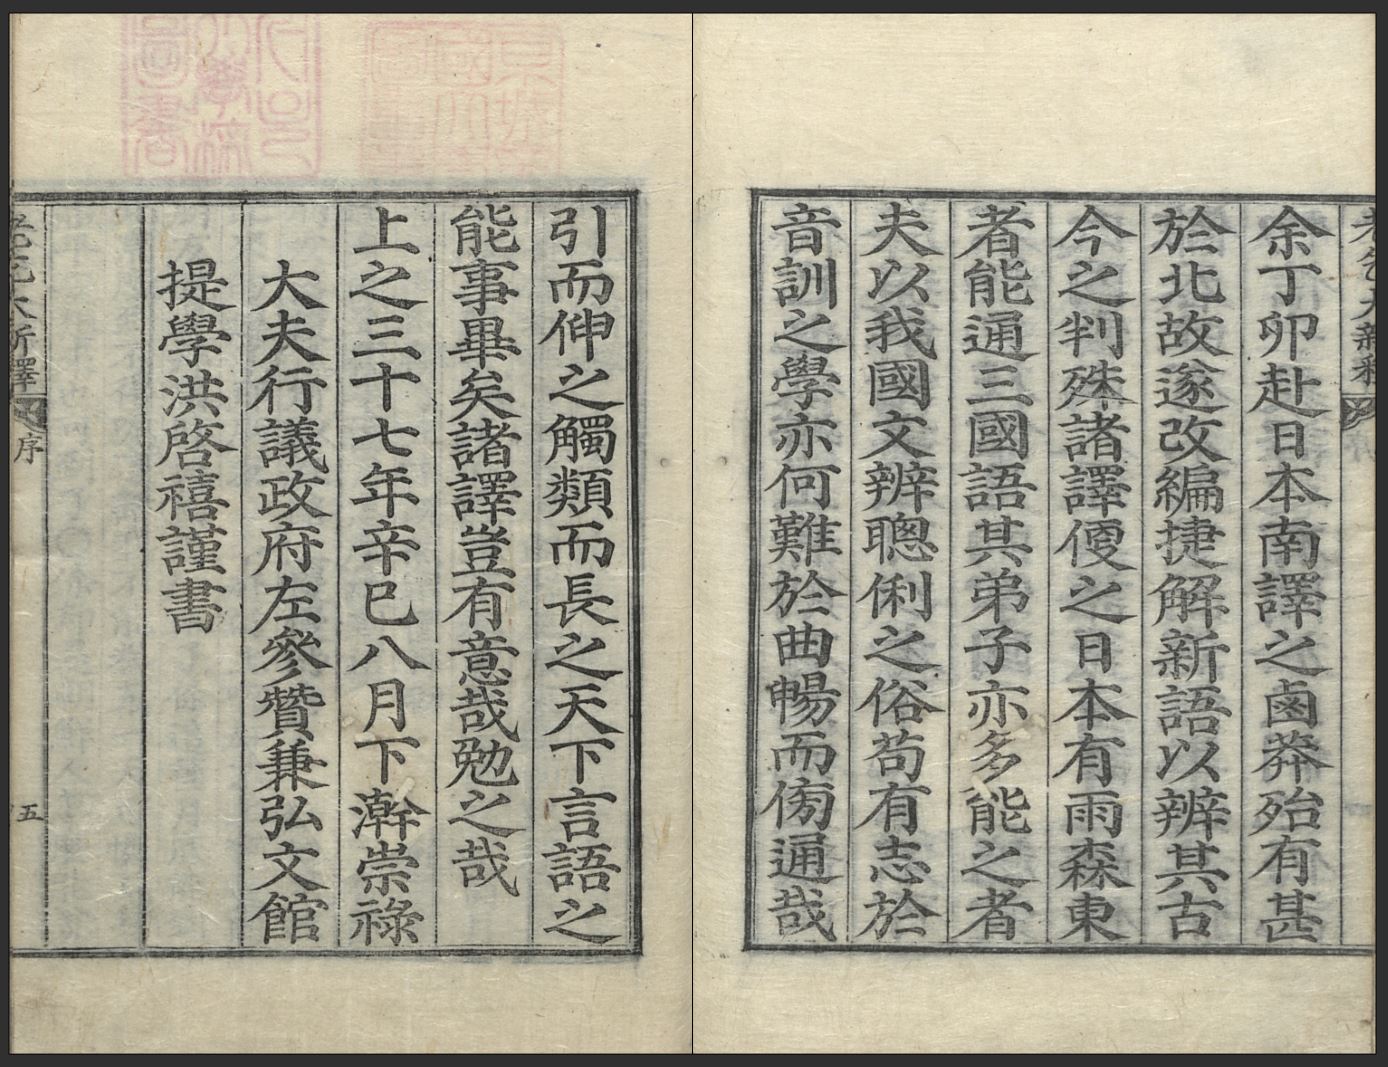 老乞大新釋
余丁卯赴日本南譯之鹵莽殆有甚
於北故遂改編捷解新語以辨其古
今之判殊諸譯便之日本有雨森東
者能通三國語其弟子亦多能之者
夫以我國文辨聰俐之俗苟有志於
音訓之學亦何難於曲暢而傍通哉
引而伸之觸類而長之天下言語之
能事畢矣諸譯豈有意哉勉之哉
上之三十七年辛巳八月下澣崇祿
大夫行議政府左參贊兼弘文館
提學洪啓禧謹書
老乞大新釋
序
五